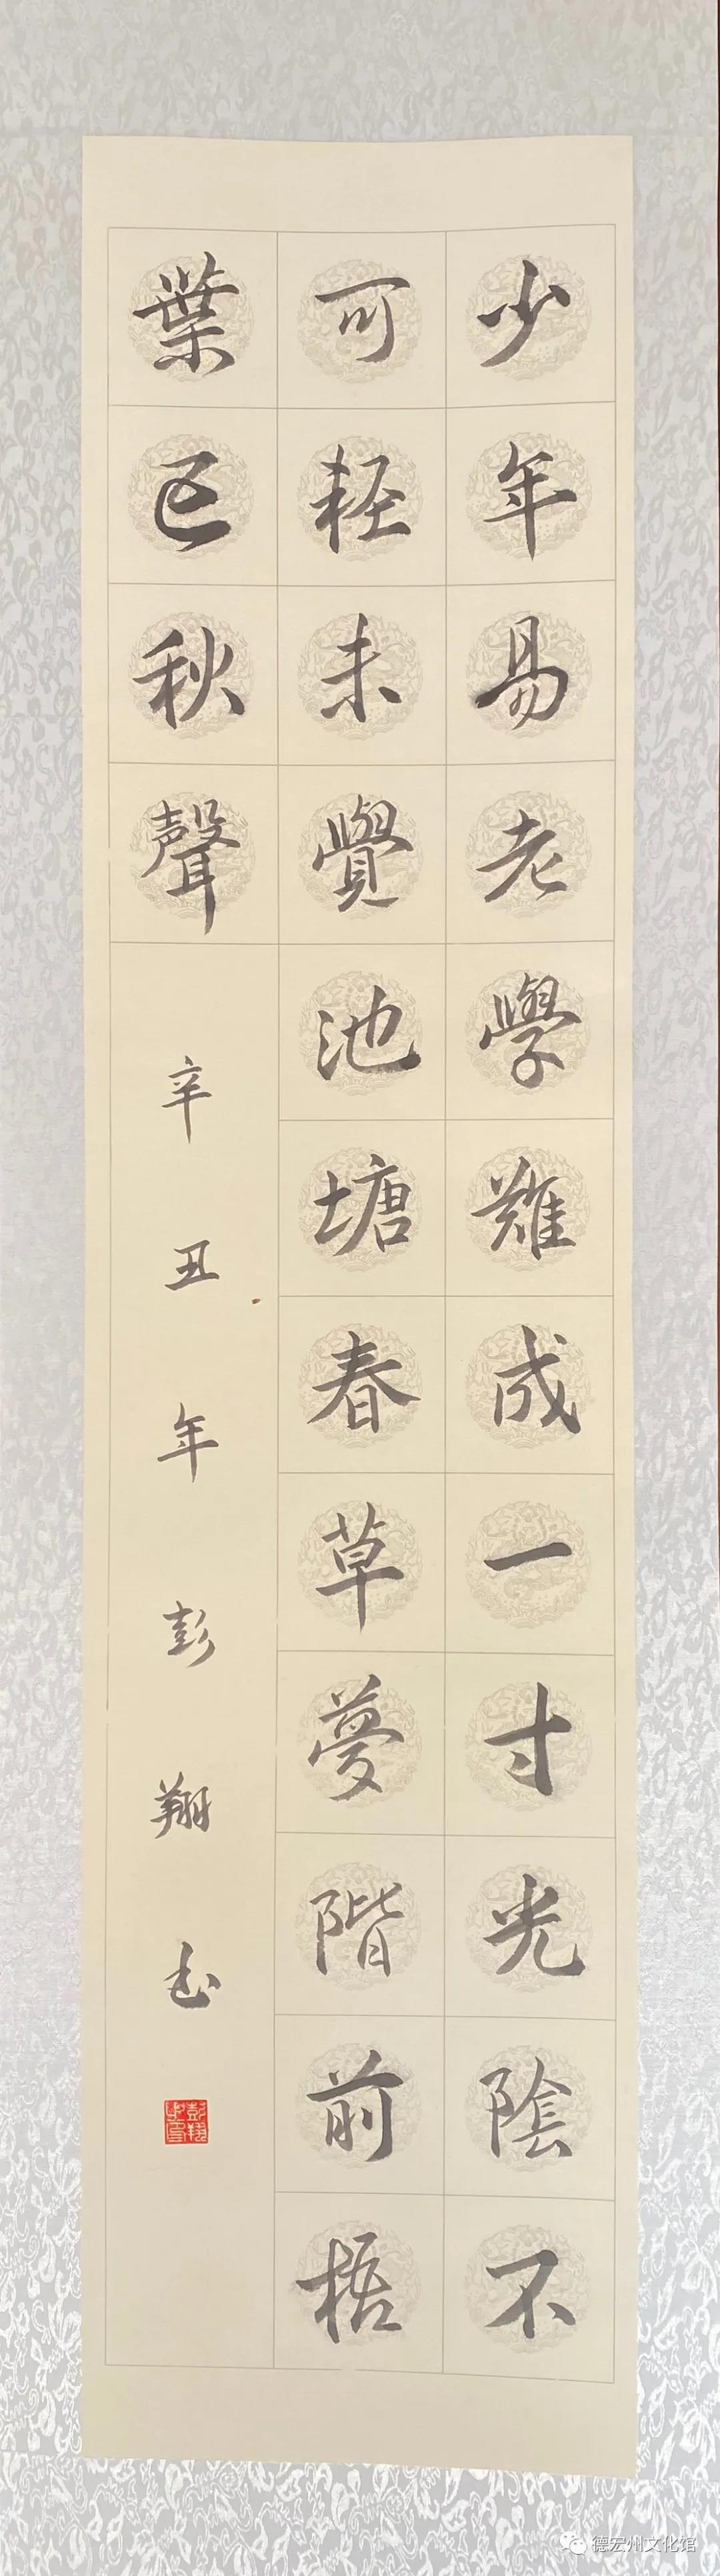 少年易老學難成一寸光陰不
可輕未覺池塘春草夢階前梧
葉已秋聲
辛丑年彭翔書
彭翔之印
德宏州文化馆